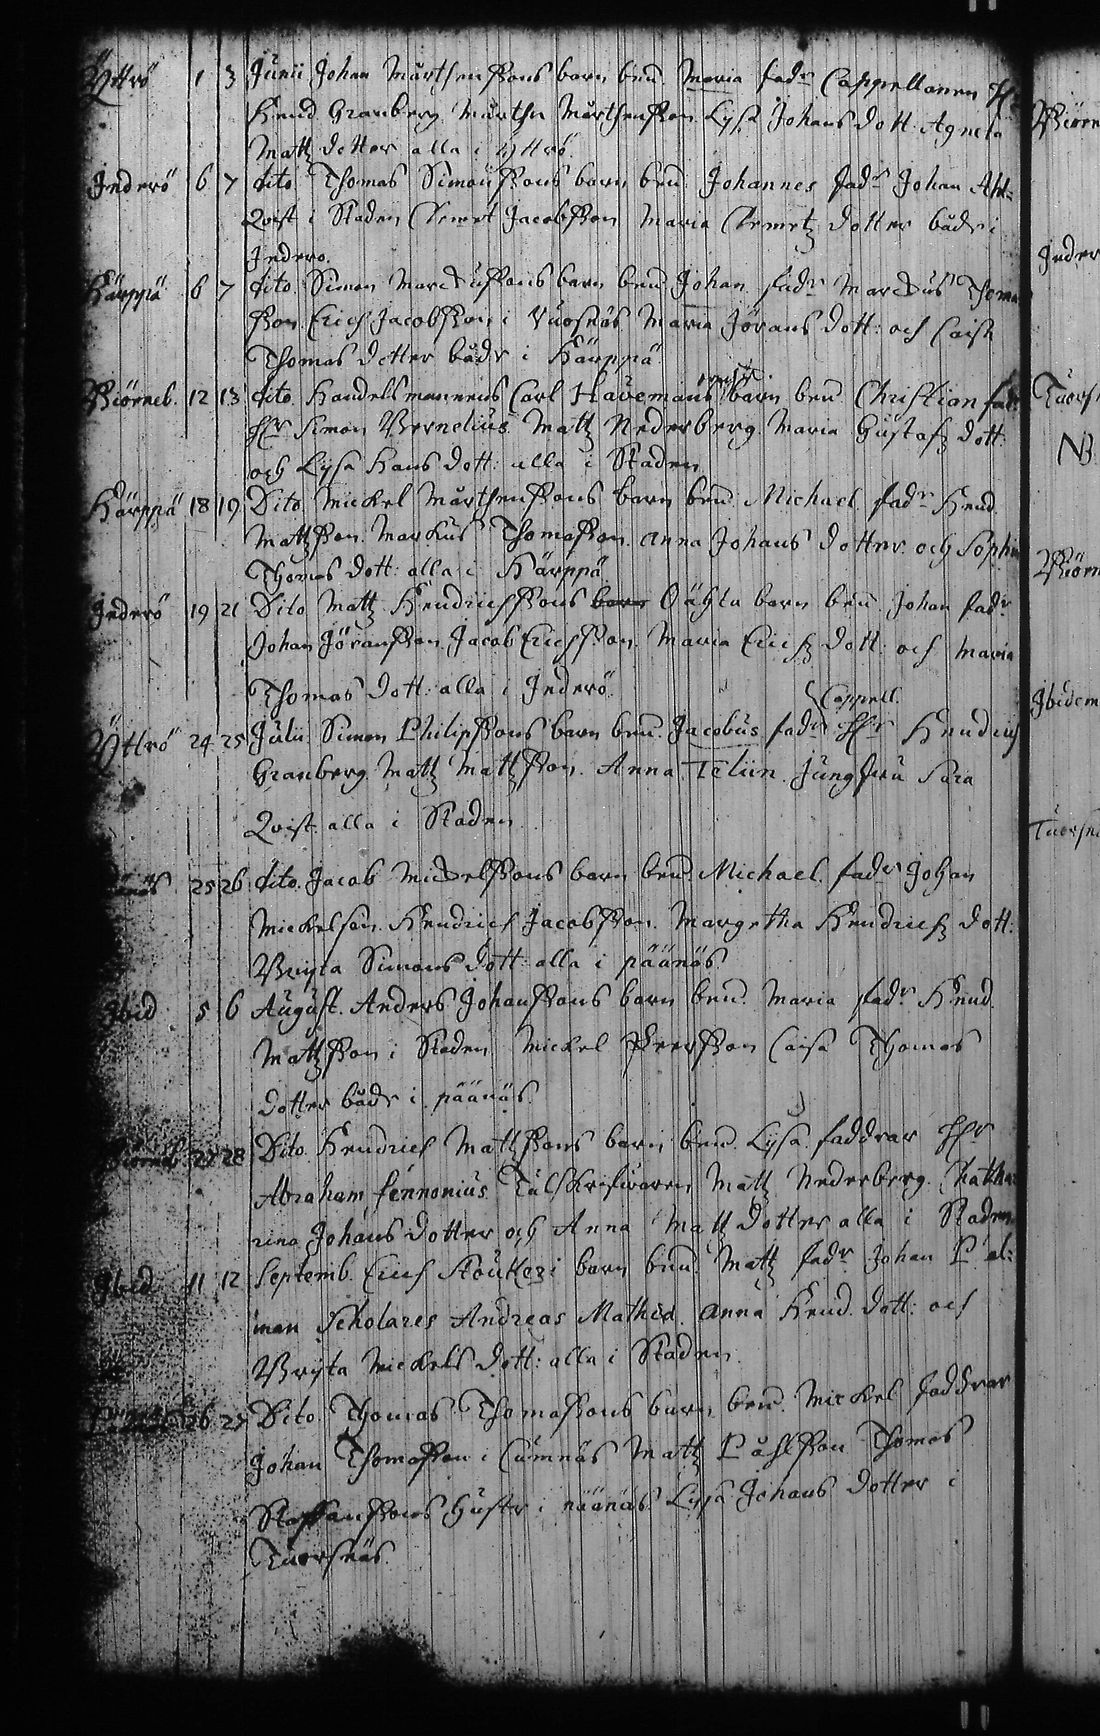 Yttrö 1 3 Junii Johan Mårthenssons barn ben. Maria fadr Cappellanen Hr
Hend Granberg. Mårthen Mårthensson. Lysa Johans dott. Agneta
Mattz dotter alla i Yttrö.
Inderö 6 7 dito Thomas Simonssons barn ben. Johannes fadr Johan Ahl-
Qvist i Staden Clemet Jacobsson Maria Clemetz dotter både i
Indero.
Härppä 6 7 dito. Simon Marckussons barn ben. Johan fadr Marckus Thomas
sson. Erich Jacobsson i Tuorsnäs Maria Jörans dott: och Caisa
Thomas dotter både i Härppä
Biörneb. 12 13 dito. Handelsmannens Carl Havemans barn ben. Christian fadr
Hr Simon Bernelius Matz Nederberg. Maria Gustafz dott:
och Lysa Hans dott: alla i Staden
Härppä 18 19 Dito Mickel Mårthenssons barn ben. Michael fadr Hend.
Mattzson. Markus Thomasson. Anna Johans dotter och Sophia
Thomas dott: alla i Härppä
Inderö 19 21 Dito Mattz Hendrichssons barn Oächta barn ben. Johan fadr
Johan Jöransson Jacob Erichsson. Maria Erichz dott: och Maria
Thomas dott: alla i Inderö.
Cappell.
Yttrö 24 25 Julii Simon Philipssons barn ben. Jacobus fadr Hr Hendrich
Granberg. Mattz Mattzson. Anna Telin. Jungfru Sara
Qvist alla i Staden
25 26 dito. Jacob Mickelssons barn ben. Michael. fadr Johan
Mickelson. Hendrich Jacobsson. Margetha Hendrichz dott:
Bryta Simons dott: alla i päänäs
Ibid 5 6 August. Anders Johanssons barn ben. Maria fadr Hend.
Mattzson i Staden Mickel Persson Caisa Thomas
dotter både i päänäs.
Biörneb 27 28 Dito. Hendrich Mattzsons barn ben. Lysa. faddrar Hr
Abraham fennonius Tulskrifwaren Mattz Nederberg. Catha
rina Johans dotter och Anna Mattz dotter alla i Staden
Ibid 11 12 Septemb. Erich barn ben. Mattz fadr Johan Pal-
man Scholares Andreas Mathiæ. Anna Hend. dott: och
Bryta Mickels dott: alla i Staden.
26 27 Dito Thomas Thomassons barn ben. Mickel faddrar
Johan Thomasson i Lämnäs Mattz Påhlsson Thomas
Staffanssons hustr i päänäs Lysa Johans dotter i
Tuorsnäs.
Biörn
Inder
Tuors
NB
Biörn
Ibidem
Tuorsnä